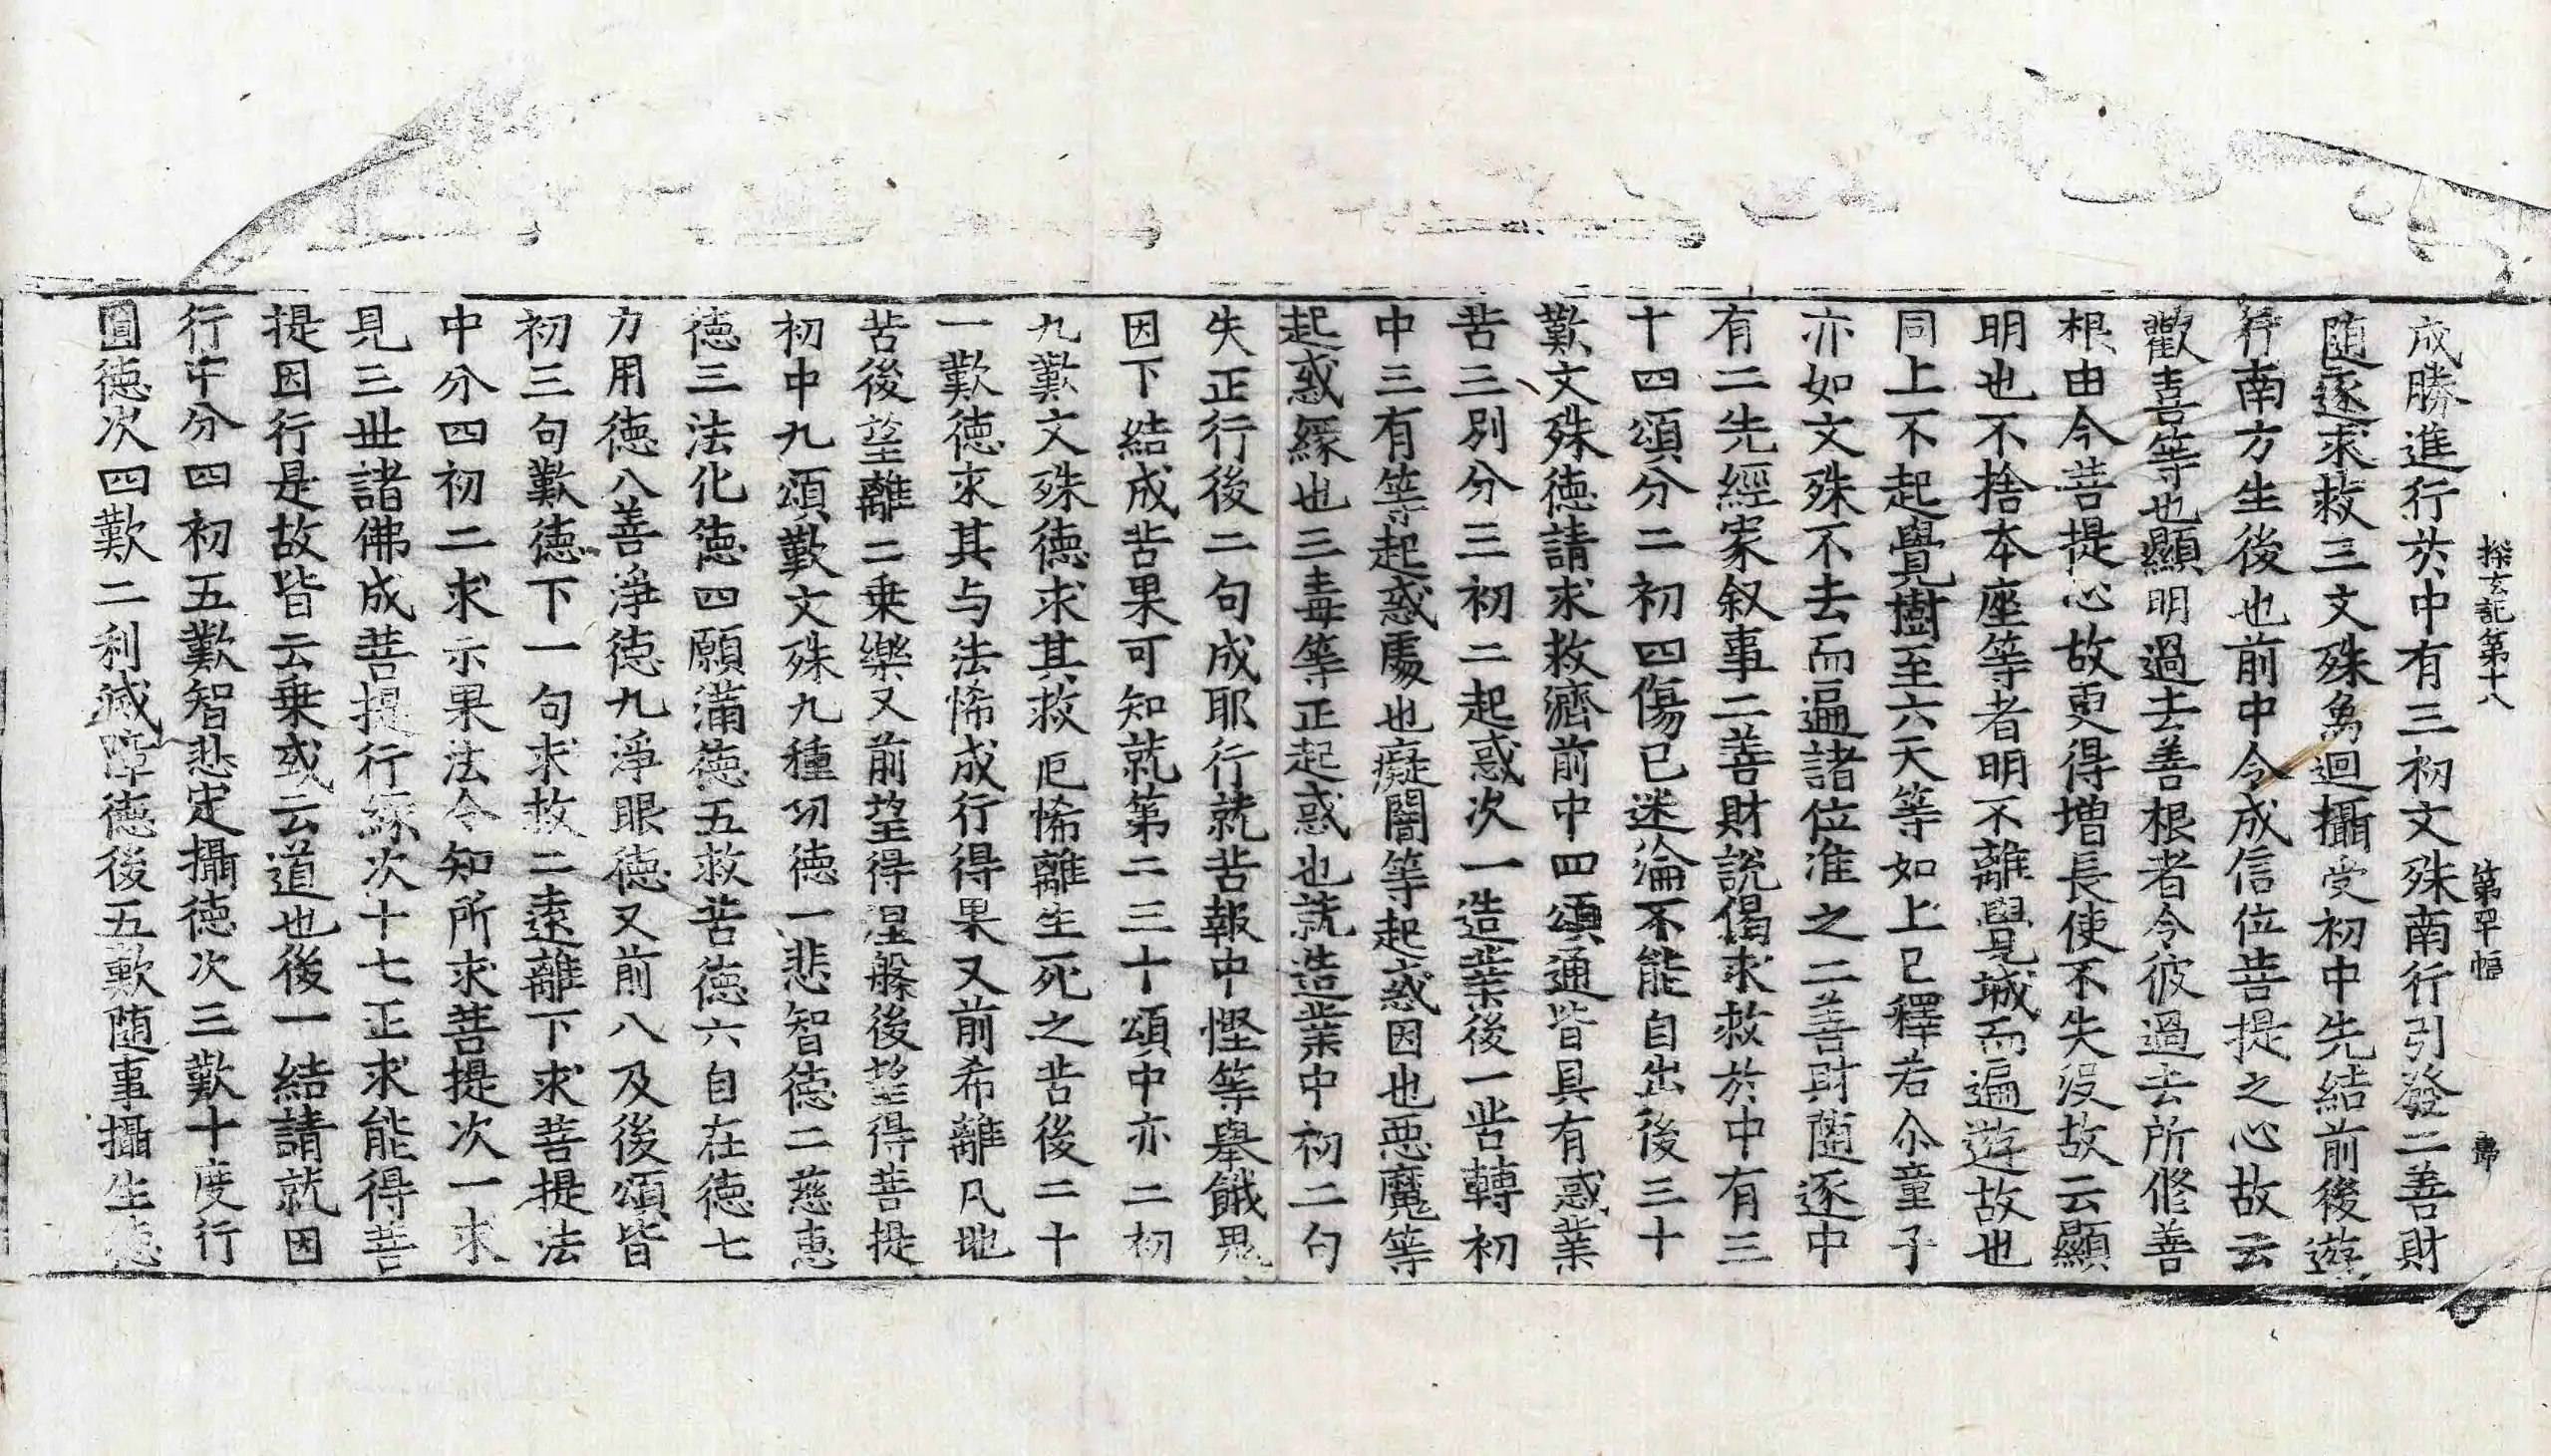 探玄記第十八 第罕幅 㝵
成勝進行扵中有三初文殊南行引發二善財
随逐求救三文殊象迴攝受初中先結前後遊
行南方生後也前中令成信位菩提之心故云
歡喜等也顯明過去善根者令彼過去所修善
根由今菩提心故更得增長使不失沒故云顯
明也不捨本座等者明不離覺城而遍遊故也
同上不起覺樹至六天等如上已釋若尒童子
亦如文殊不去而遍諸位准之二善財随逐中
有二先經家叙事二善財說偈求救於中有三
十四頌分二初四傷已迷淪不能自出後三十
歎文殊徳請求救濟前中四頌通皆具有惑業
苦三別分三初二起惑次一造業後一苦轉初
中三有等起惑處也癡闇等起惑因也惡魔等
起惑緣也三毒等正起惑也就造業中初二句
失正行後二句成耶行就苦報中慳等舉餓鬼
因下結成苦果可知就第二三十頌中亦二初
九歎文殊徳求其救厄悕離生死之苦後二十
一歎徳求其与法悕成行得果又前希離凡地
苦後望離二乗樂又前望得涅槃後望得菩提
初中九頌歎文殊九種功徳一悲智徳二慈惠
徳三法化徳四願滿徳五救苦徳六自在徳七
力用徳八善淨徳九淨眼徳又前八及後頌皆
初三句歎徳下一句求救二遠離下求菩提法
中分四初二求示果法令知所求菩提次一求
見三世諸佛成菩提行緣次十七正求能得菩
提因行是故皆云乗或云道也後一結請就因
行中分四初五歎智悲定攝徳次三歎十度行
圓徳次四歎二利滅障徳後五歎随事攝生徳